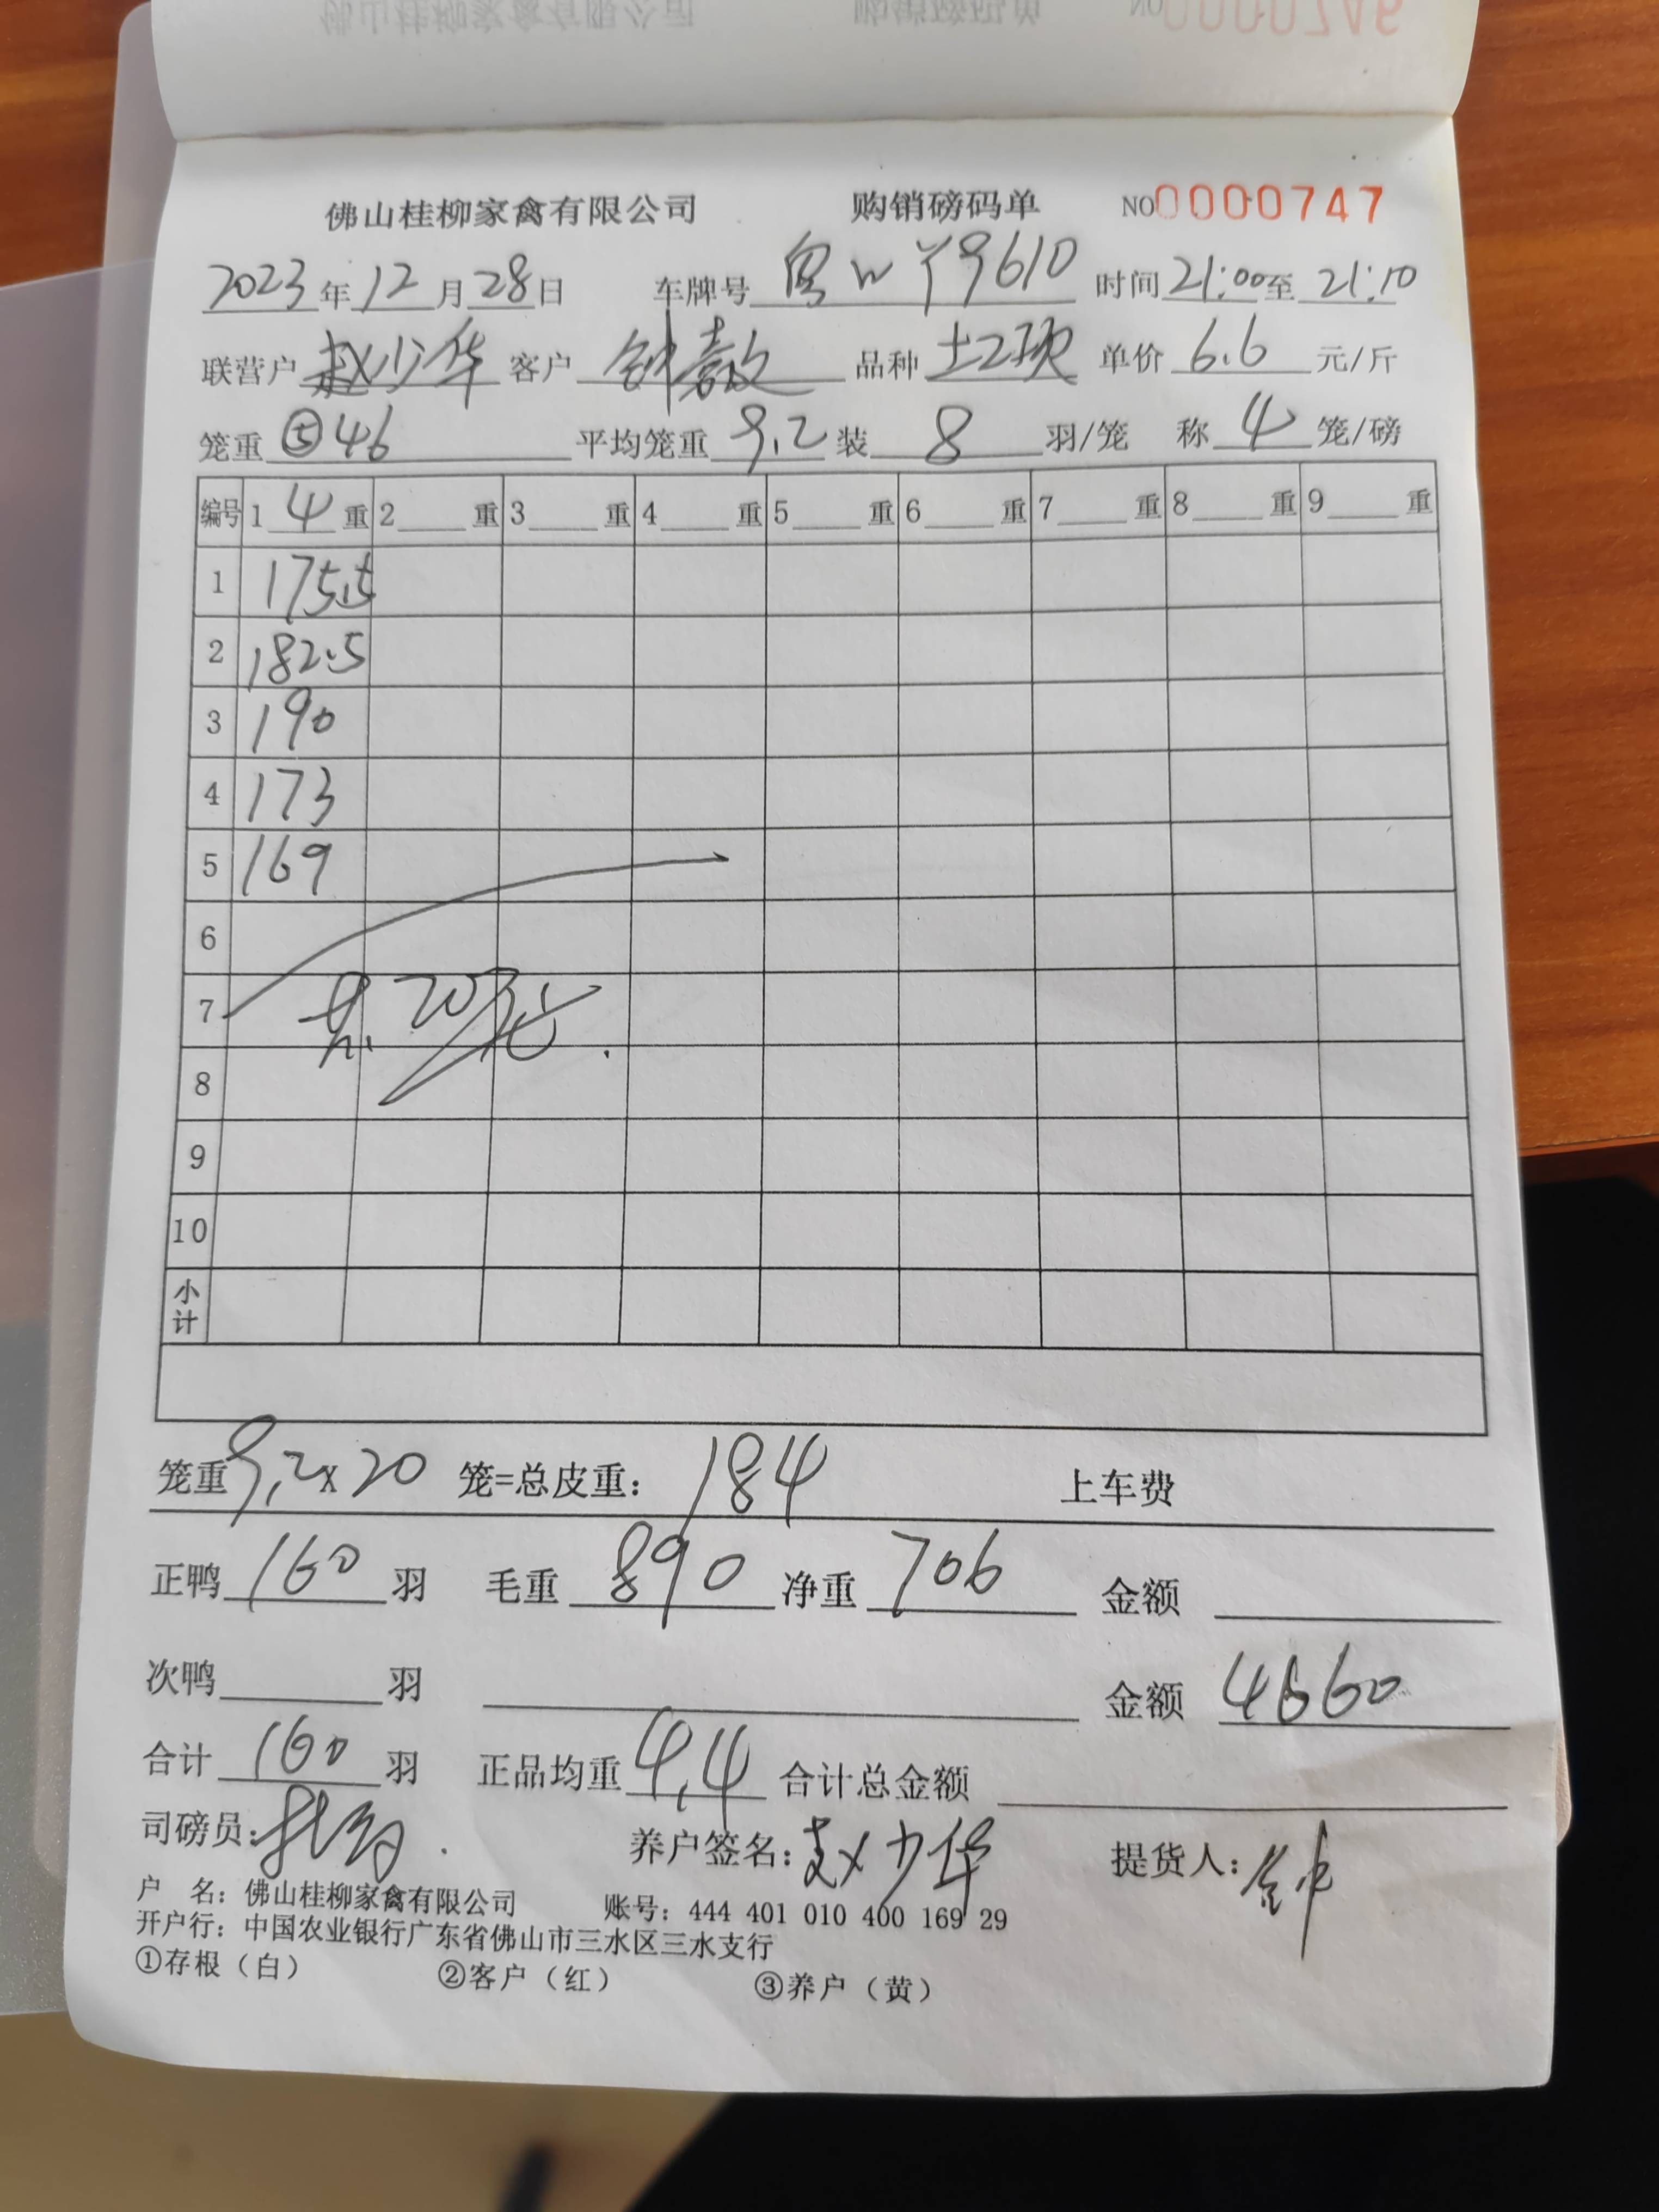 佛山桂柳家禽有限公司 购销磅码单 NO0000747
2023年12月28日 车牌号 粤WY9610 时间21:00至21:10
联营户 赵少华 客户 钟 品种 土2项 单价 6.6 元/斤
笼重 ⑤46 平均笼重 9.2 装 8 羽/笼 称 4 笼/磅
编号 1 4 重 2 重 3 重 4 重 5 重 6 重 7 重 8 重 9 重
1 175.5
2 182.5
3 190
4 173
5 169
6
7 共20笼.
8
9
10
小计
笼重9.2x20 笼=总皮重: 184 上车费
正鸭 160 羽 毛重 890 净重 706 金额
次鸭 羽 金额 4660
合计 160 羽 正品均重 4.4 合计总金额
司磅员: 养户签名: 赵少华 提货人: 钟
户 名: 佛山桂柳家禽有限公司 账号: 444 401 010 400 169 29
开户行: 中国农业银行广东省佛山市三水区三水支行
①存根（白） ②客户（红） ③养户（黄）